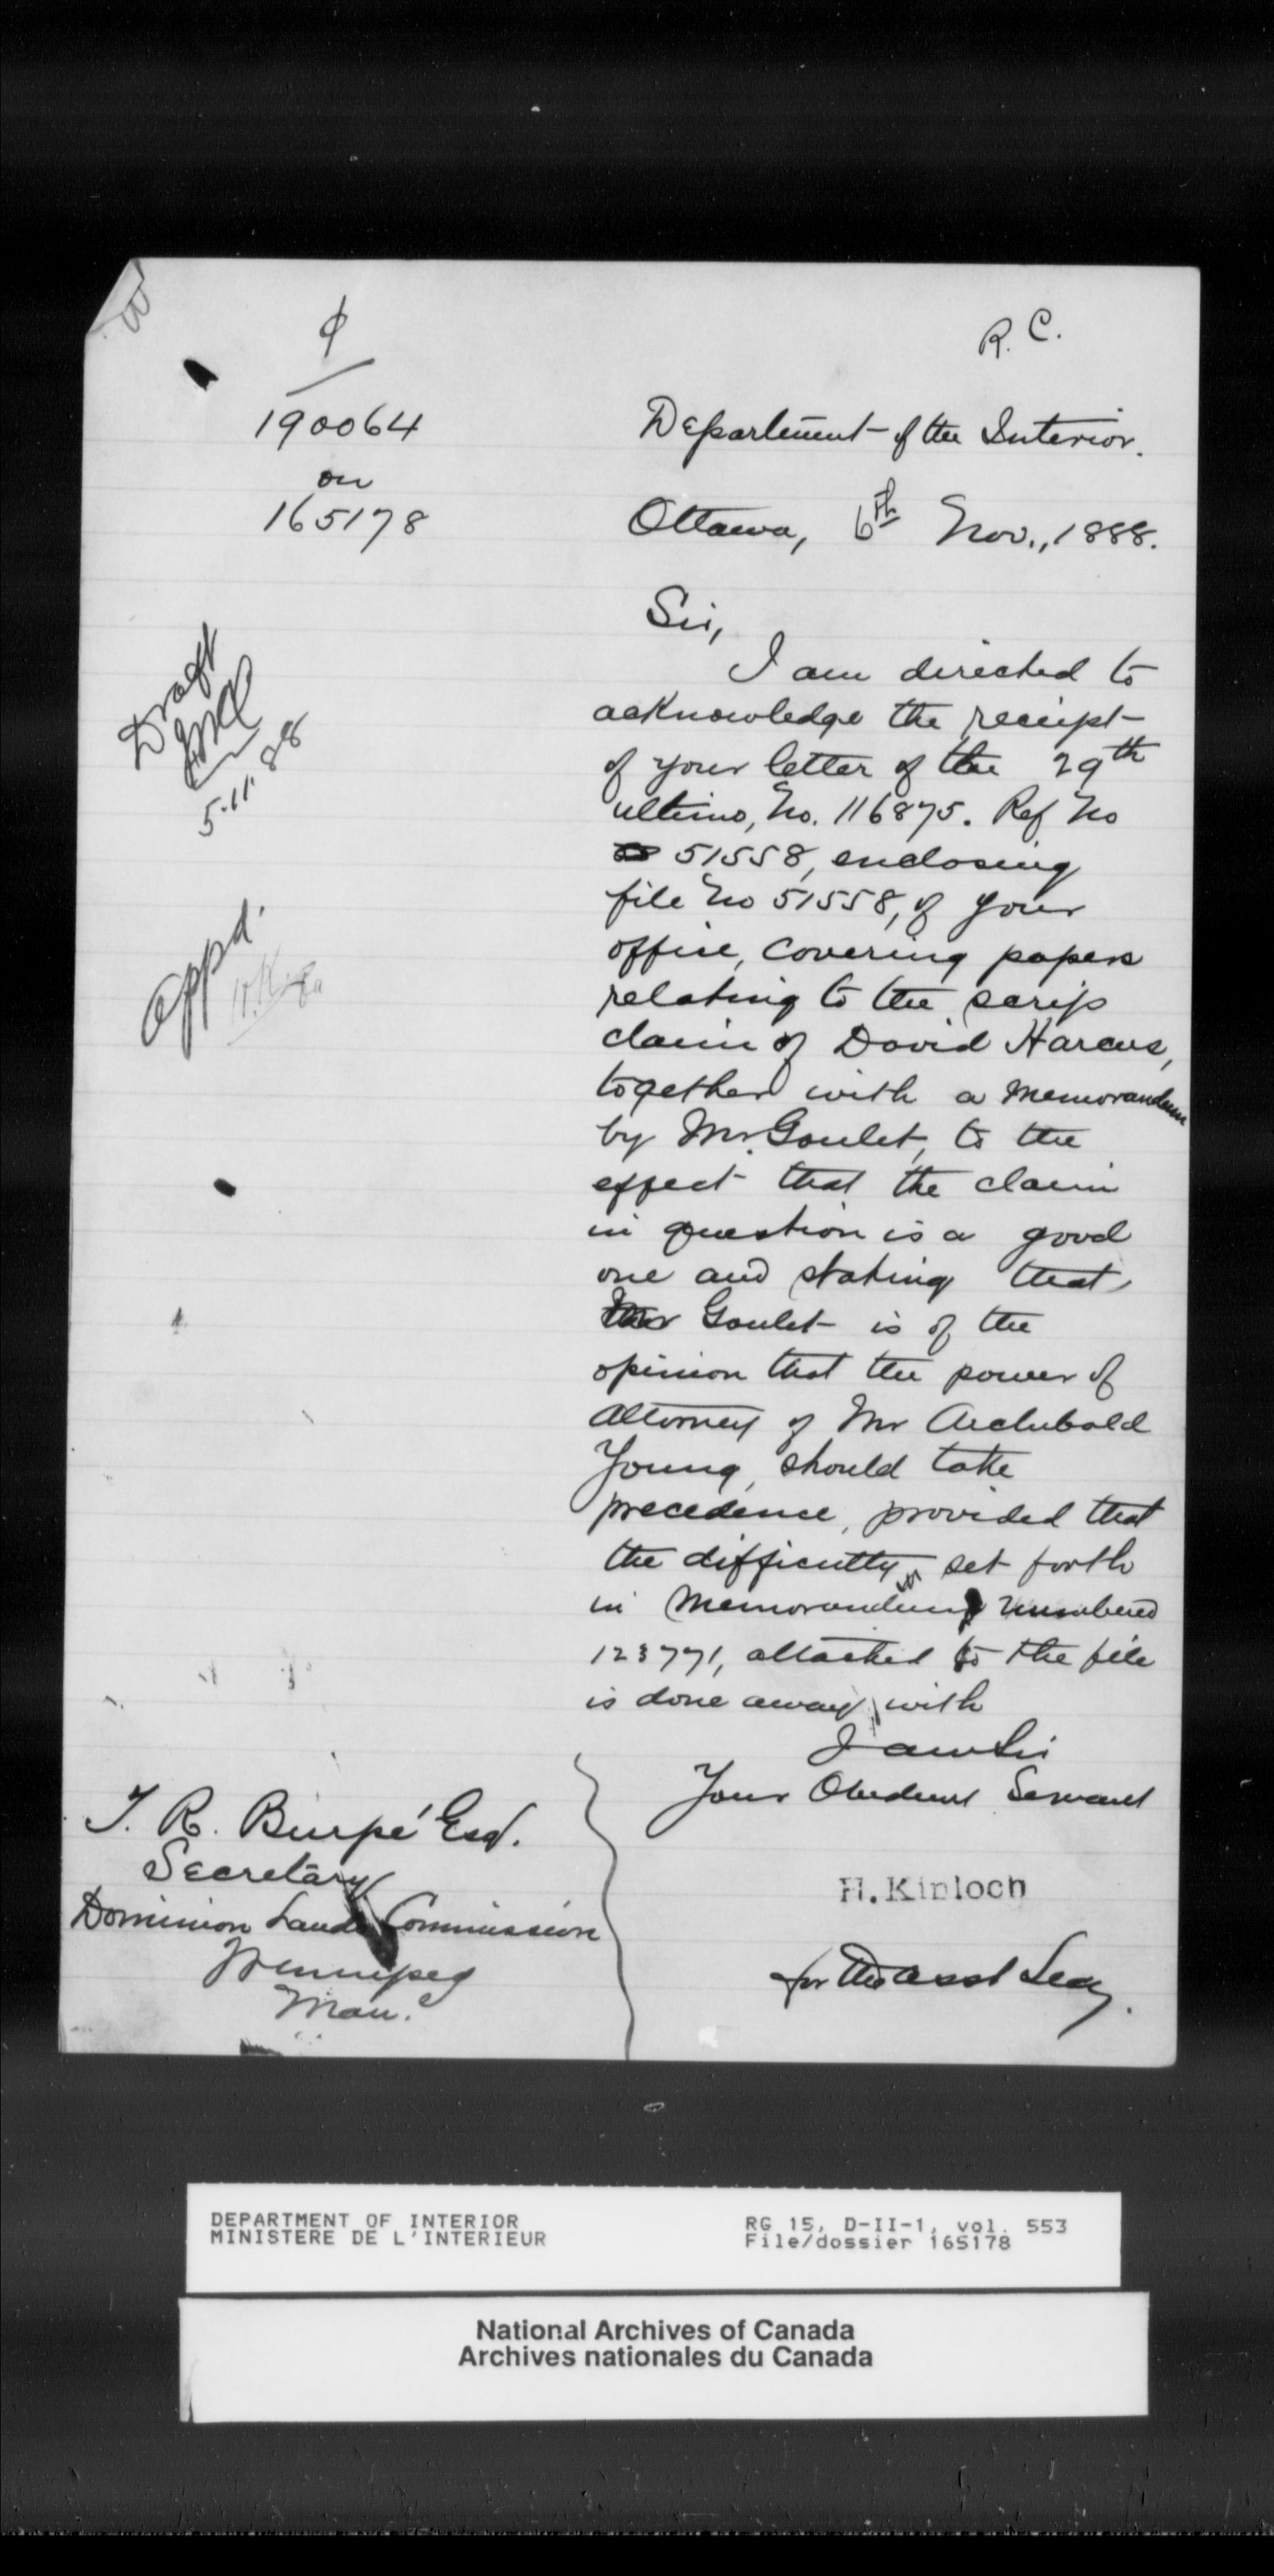 R. C.
190064
on
165178
Department of the Interior.
Ottawa, 6th Nov., 1888.
Draft
5.11.88
Appd.
Sir,
I am directed to
acknowledge the receipt
of your letter of the 29th
ultimo, No. 116875. Ref No
51558, enclosing
file No 51558, of your
office, covering papers
relating to the scrip
claim of David Harcus,
together with a memorandum
by Mr. Goulet, to the
effect that the claim
in question is a good
one and stating that
Mr Goulet is of the
opinion that the power of
Attorney of Mr Archibald
Young, should take
precedence, provided that
the difficulty set forth
in Memorandum numbered
123771, attached to the file
is done away with
I am Sir
Your Obedient Servant
H. Kinloch
for the Asst Secy.
T. R. Burpé Esq.
Secretary
Dominion Lands Commission
Winnipeg
Man.
DEPARTMENT OF INTERIOR
MINISTERE DE L'INTERIEUR
RG 15, D-II-1, vol. 553
File/dossier 165178
National Archives of Canada
Archives nationales du Canada